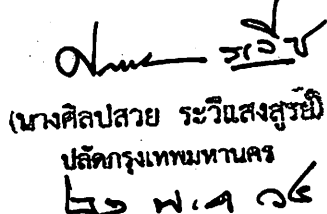 (นางศิลปสวย ระวีแสงสูรย์)
ปลัดกรุงเทพมหานคร
๒๑ พ.ค. ๖๔